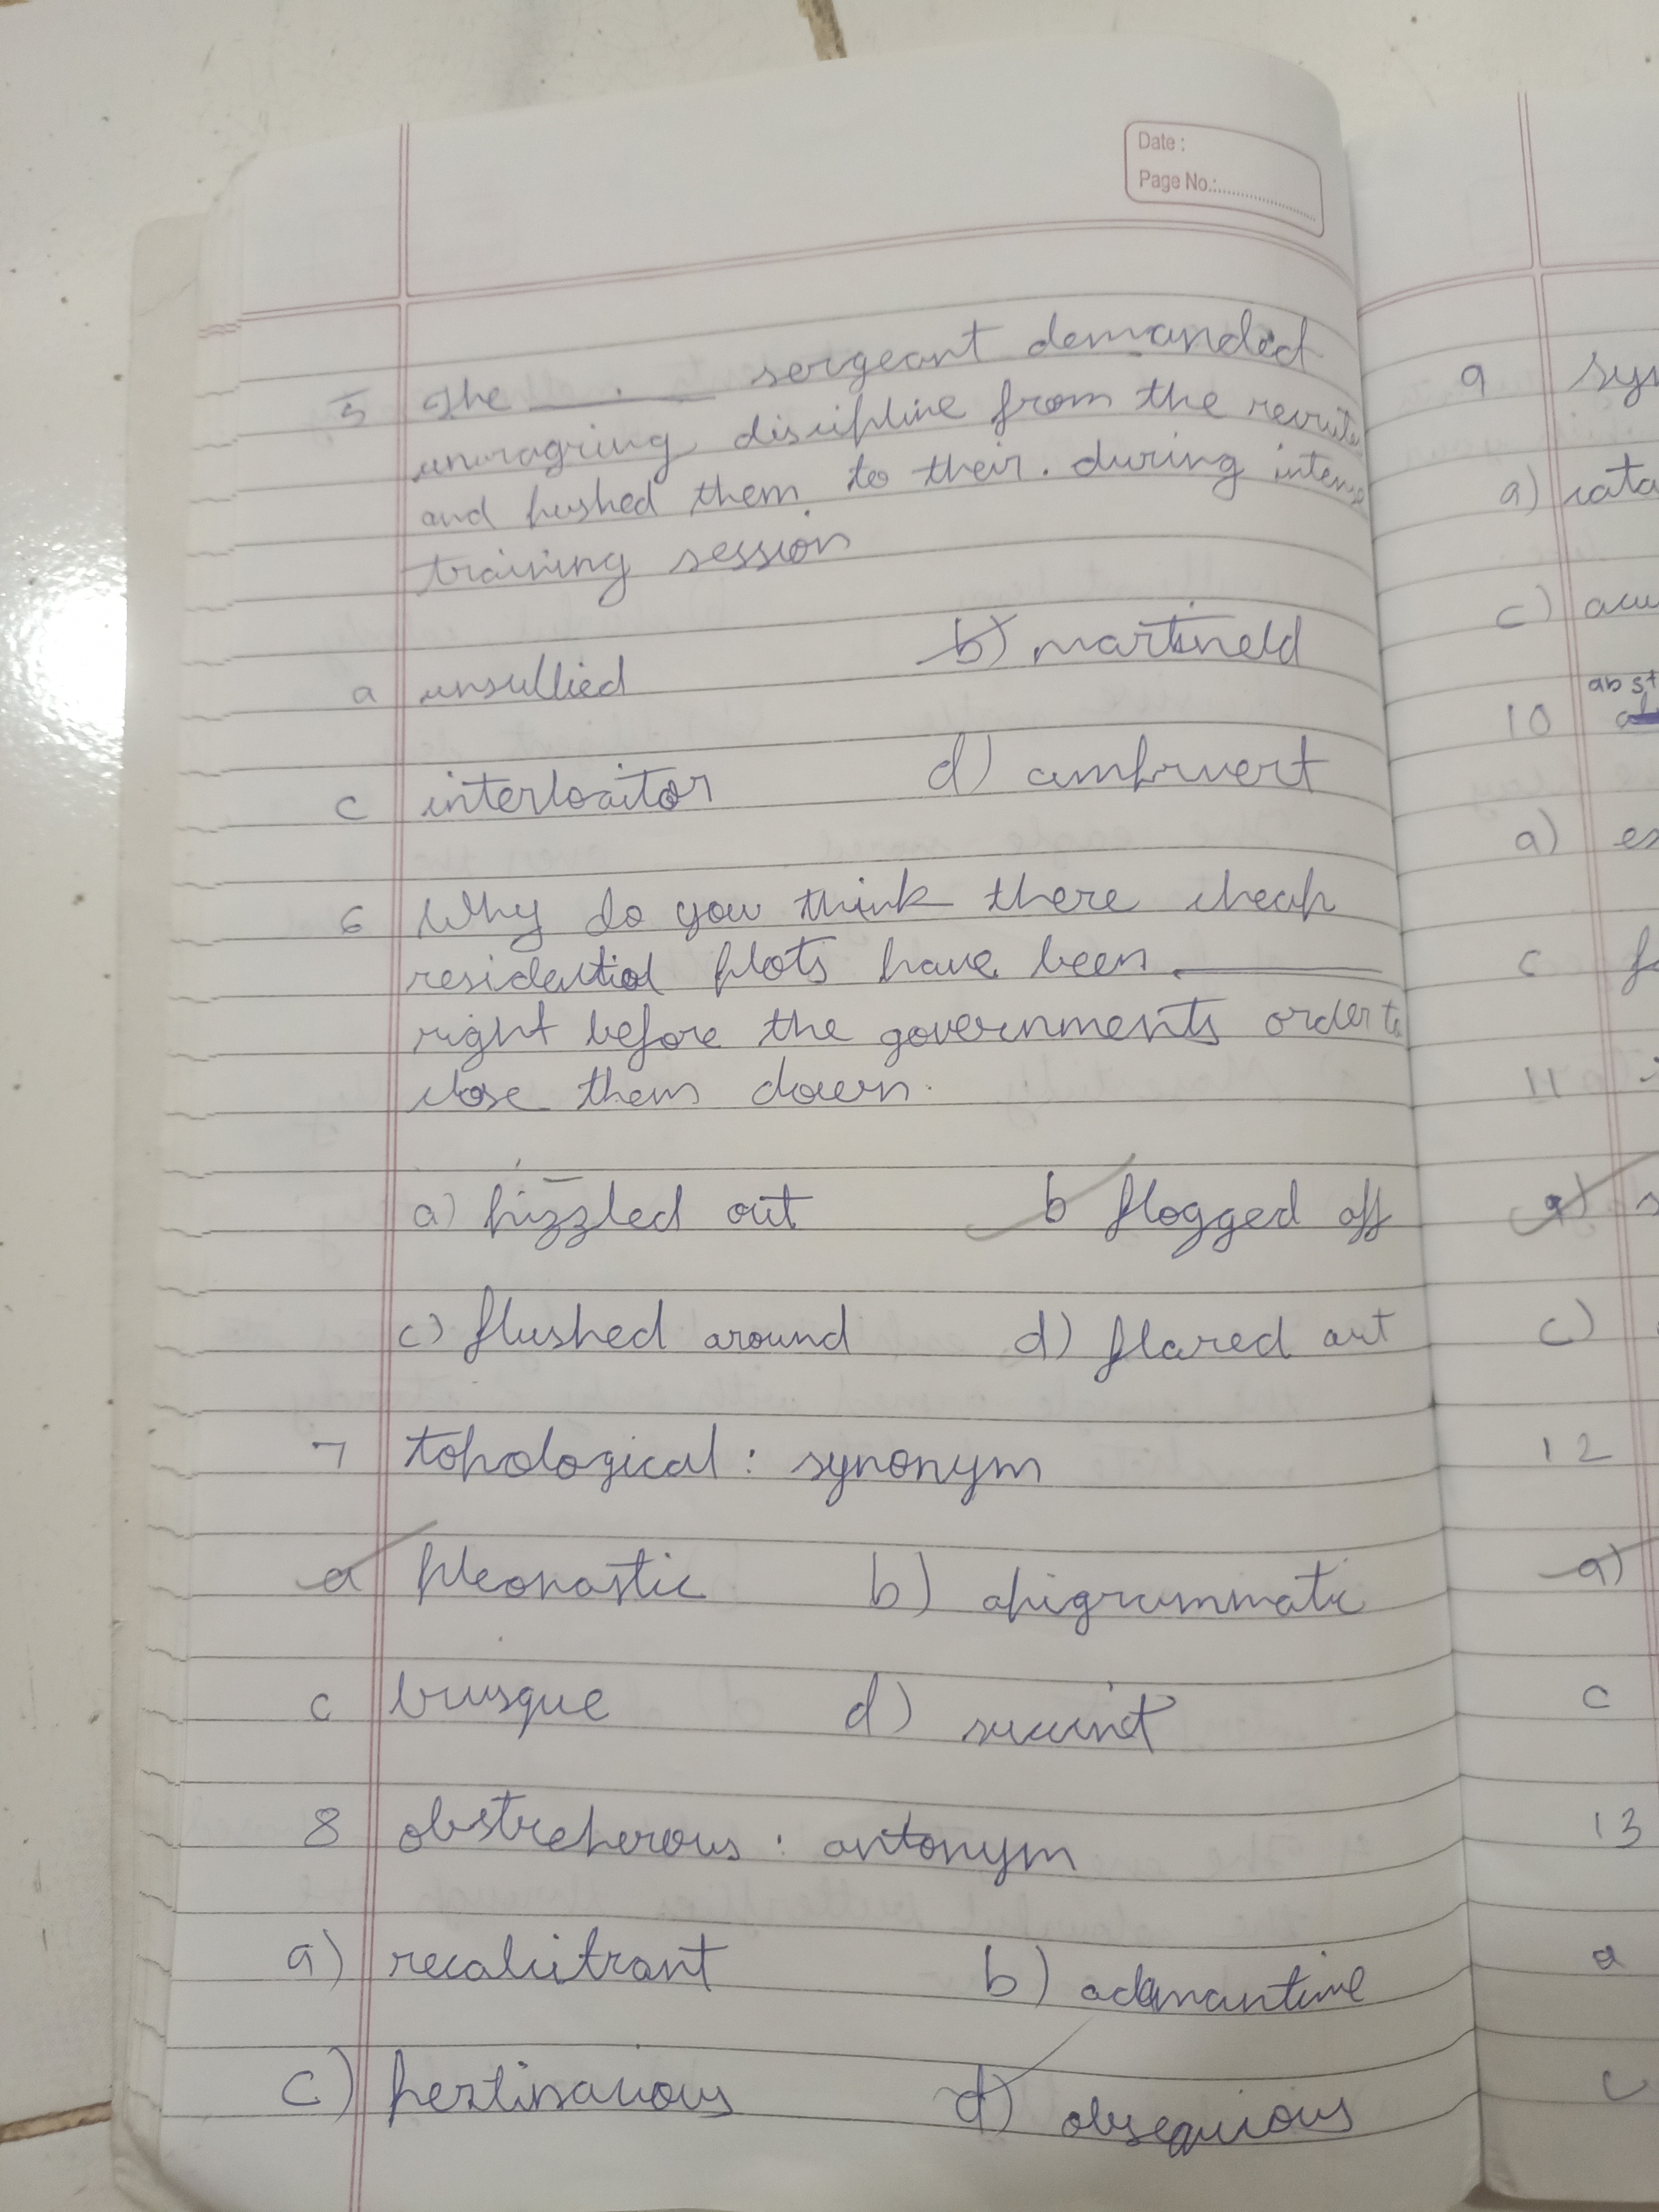 Date :
Page No.:
5 The ____ sergeant demanded
unwavring discipline from the recruits
and pushed them to their. during intense
training session
a unsullied b) martineld
c interlocitor d)
6 Why do you think there cheap
residential plots have been ____
right before the governments order to
close them down.
a) fizzled out b flogged off
c) flushed around d) flared out
7 topological : synonym
a pleonastic b) epigrammatic
c brusque d) succinct
8 obstreperous : antonym
a) recalcitrant b) adamantine
c) pertinacious d) obsequious
9
a)
c)
10
a)
c
11
a)
c)
12
a)
c
13
a
c